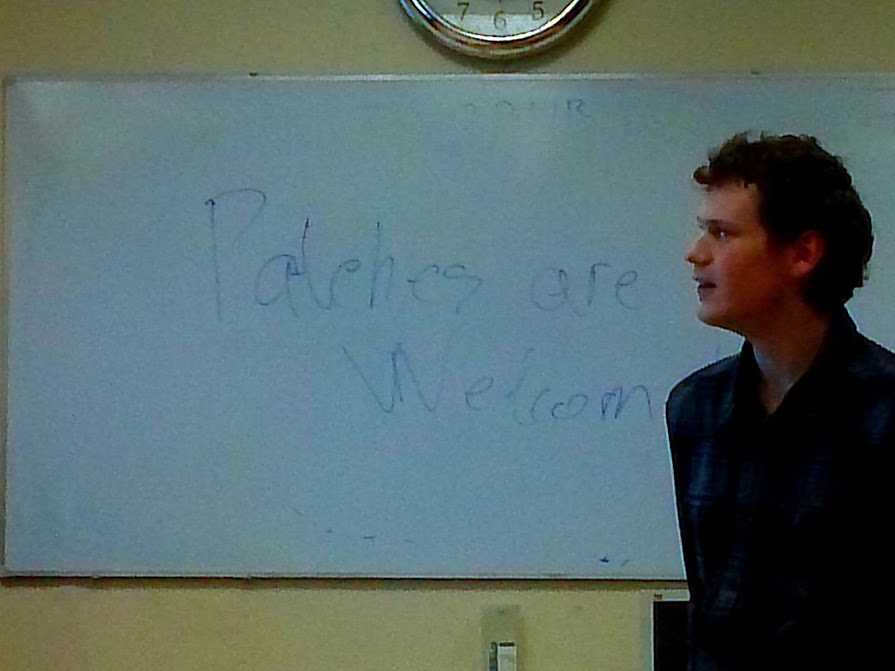 7 6 5
Patches are
Welcom